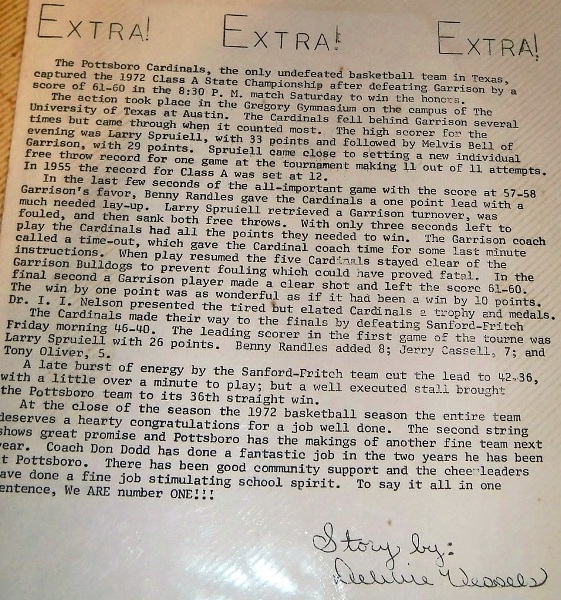 EXTRA! EXTRA! EXTRA!
The Pottsboro Cardinals, the only undefeated basketball team in Texas,
captured the 1972 Class A State Championship after defeating Garrison by a
score of 61-60 in the 8:30 P. M. match Saturday to win the honors.
The action took place in the Gregory Gymnasium on the campus of The
University of Texas at Austin. The Cardinals fell behind Garrison several
times but came through when it counted most. The high scorer for the
evening was Larry Spruiell, with 33 points and followed by Melvis Bell of
Garrison, with 29 points. Spruiell came close to setting a new individual
free throw record for one game at the tournament making 11 out of 11 attempts.
In 1955 the record for Class A was set at 12.
In the last few seconds of the all-important game with the score at 57-58
Garrison's favor, Benny Randles gave the Cardinals a one point lead with a
much needed lay-up. Larry Spruiell retrieved a Garrison turnover, was
fouled, and then sank both free throws. With only three seconds left to
play the Cardinals had all the points they needed to win. The Garrison coach
called a time-out, which gave the Cardinal coach time for some last minute
instructions. When play resumed the five Cardinals stayed clear of the
Garrison Bulldogs to prevent fouling which could have proved fatal. In the
final second a Garrison player made a clear shot and left the score 61-60.
The win by one point was as wonderful as if it had been a win by 10 points.
Dr. I. I. Nelson presented the tired but elated Cardinals a trophy and medals.
The Cardinals made their way to the finals by defeating Sanford-Fritch
Friday morning 46-40. The leading scorer in the first game of the tourne was
Larry Spruiell with 26 points. Benny Randles added 8; Jerry Cassell, 7; and
Tony Oliver, 5.
A late burst of energy by the Sanford-Fritch team cut the lead to 42-36,
with a little over a minute to play; but a well executed stall brought
the Pottsboro team to its 36th straight win.
At the close of the season the 1972 basketball season the entire team
deserves a hearty congratulations for a job well done. The second string
shows great promise and Pottsboro has the makings of another fine team next
year. Coach Don Dodd has done a fantastic job in the two years he has been
t Pottsboro. There has been good community support and the cheerleaders
ave done a fine job stimulating school spirit. To say it all in one
entence, We ARE number ONE!!!
Story by:
Debbie Wessels